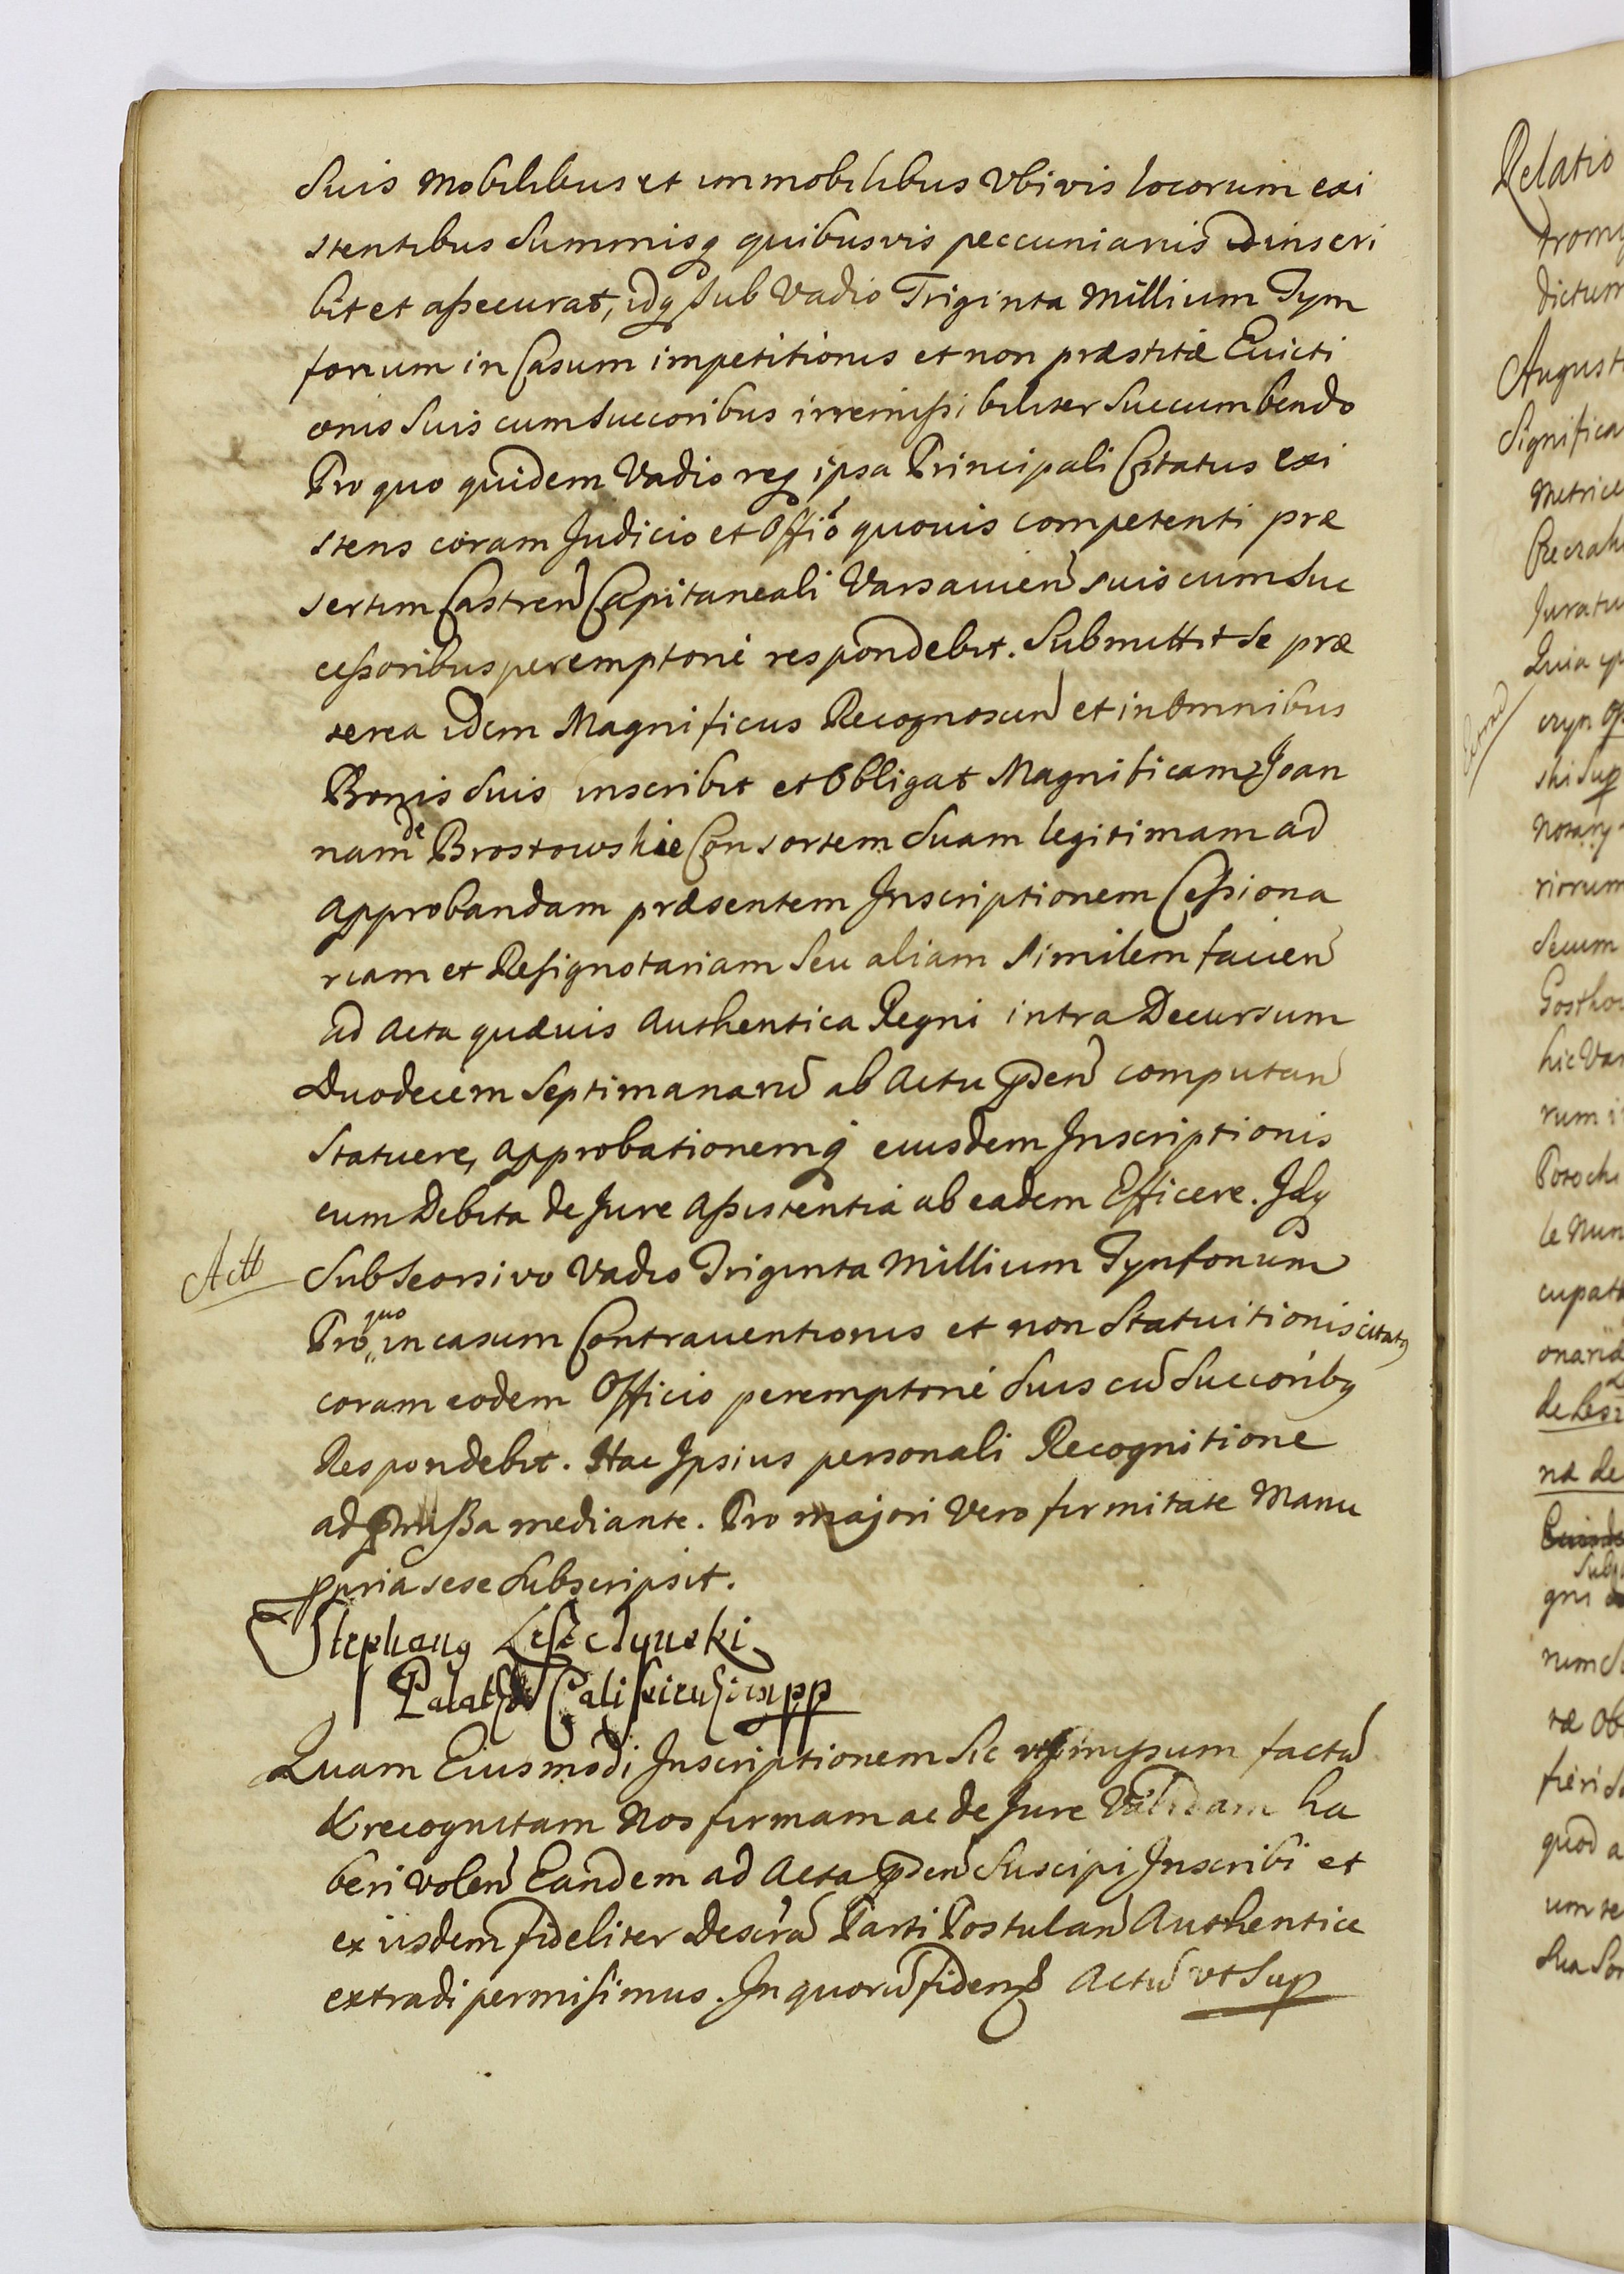 Suis Mobilibus et immobilibus Vbivis locorum exi
stentibus Summisq quibusvis peccuniarijs inscri
bit et assecurat, idq sub Vadio Triginta Millium Tym
forum in Casum impetitionis et non præstitæ Euicti
onis Suis cum Succoribus irremissibiliter Succumbendo
Pro quo quidem Vadio req ipsa Principali Citatus exi
stens coram Judicio et Offio quouis competenti præ
sertim Castren Capitaneali Varsauien suis cum Suc
cessoribus peremptorie respondebit. Submittit Se præ
terea idem Magnificus Recognoscen et in Omnibus
Bonis Suis inscribit et Obligat Magnificam Joan
nam de Brostowskie Consortem Suam legitimam ad
Approbandam præsentem Inscriptionem Cessiona
riam et Resignatariam Seu aliam Similem facien
ad Acta quævis Authentica Regni intra Decursum
Duodecem Septimanaru ab Actu pden computan
Statuere, Approbationemq eiusdem Inscriptionis
cum Debita de Jure Assistentia ab eadem Efficere. Idq
Actt
Sub Seorsivo Vadio Triginta Millium Tynfonum
Pro quo in casum Contrauentionis et non Statuitionis citatq
coram eodem Officio peremptorie Suis cu Succoribq
Respondebit. Hac Ipsius personali Recognitione
ad pmissa mediante. Pro majori Vero firmitate Manu
ppria sese Subscripsit.
Stephanq Leszczynski
Palat Calissiensis mpp
Quam Eiusmodi Inscriptionem Sic factu
& recognitam Nos firmam ac de Jure Validam ha
beri volen Eandem ad Acta pden Suscipi Inscribi et
ex iisdem fideliter Descra Parti Postulan Authentice
extradi permisimus. In quoru fidem Actu vt Sup
Relatio
dictum
August
Significa
Metrice
Juratu
Quia
ski Sup
Notary
riorum
Secum
hic Var
rum
le Nun
onaria
na de
gni
fieri
quod a